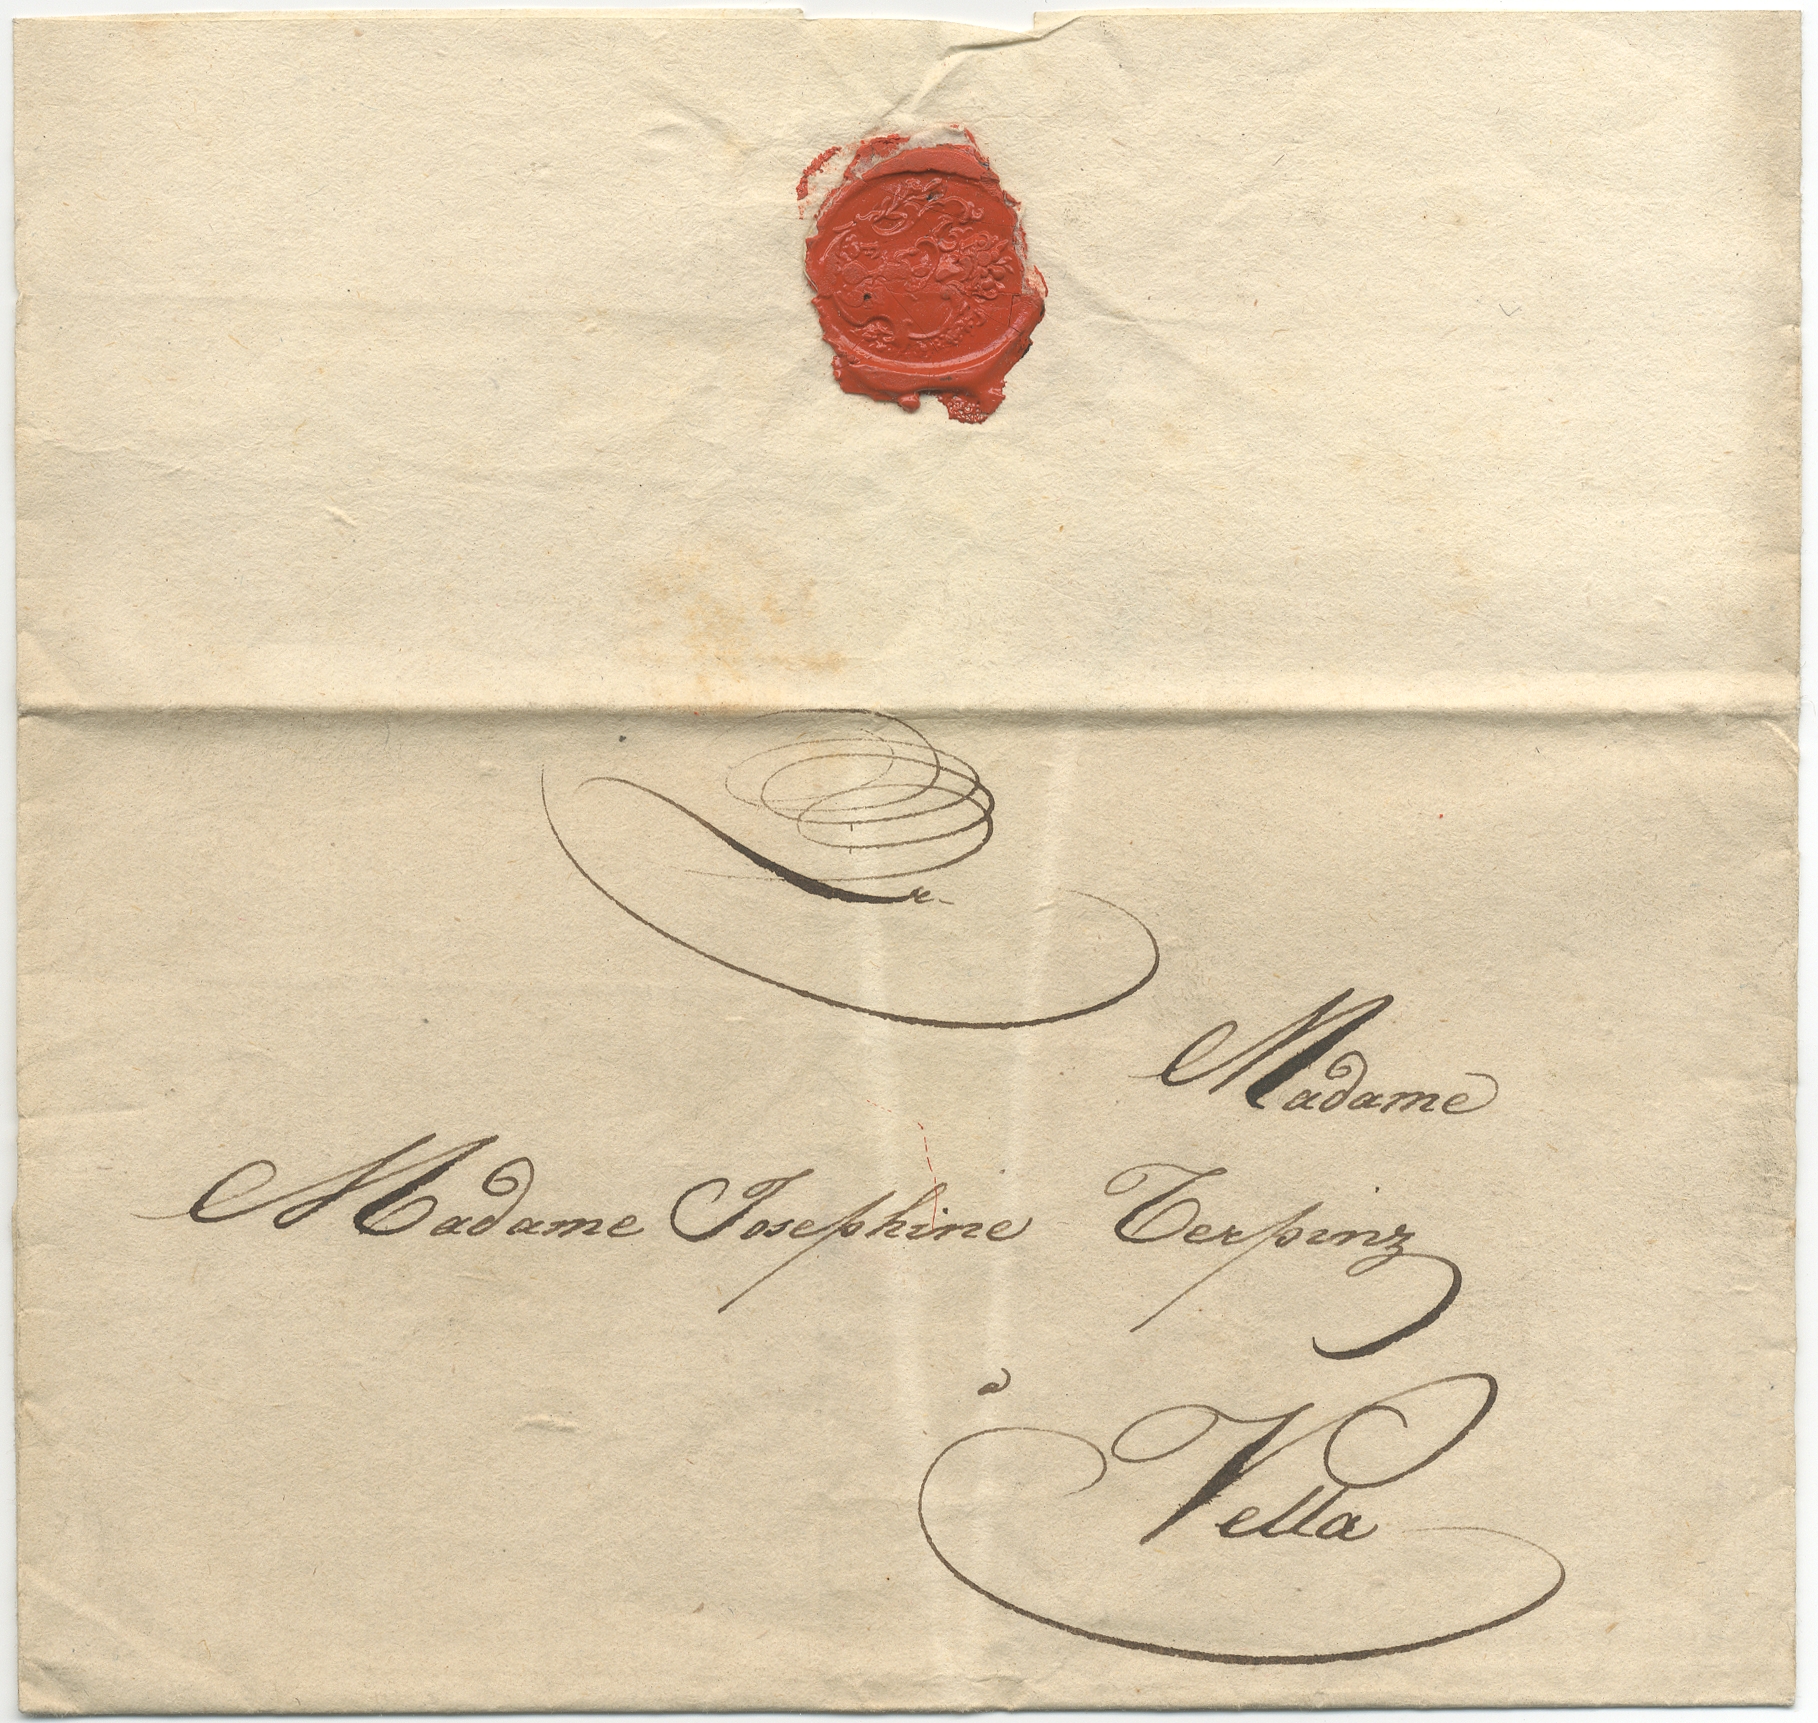 Madame
Madame Josephine Terpinz
a
Vella